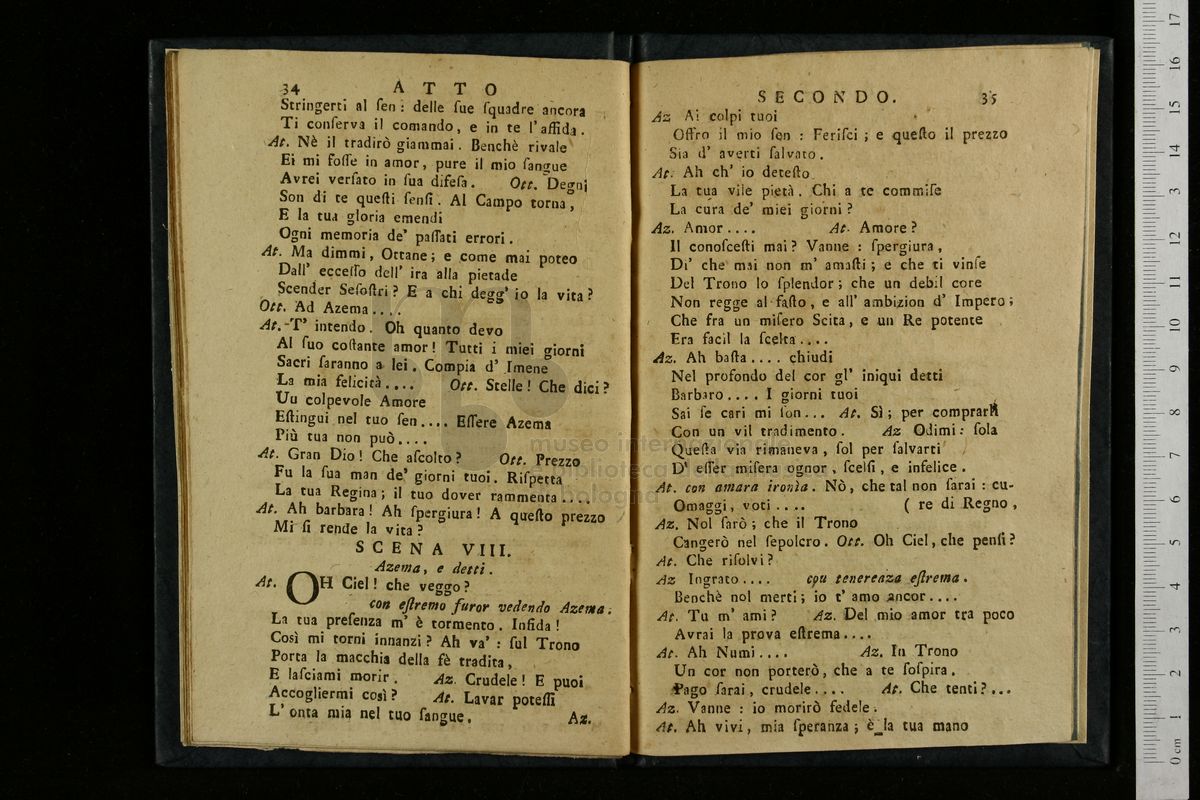 34 ATTO
Stringerti al ſen: delle ſue ſquadre ancora
Ti conſerva il comando, e in te l'affida.
At. Nè il tradirò giammai. Benchè rivale
Ei mi foſſe in amor, pure il mio ſangue
Avrei verſato in ſua difeſa. Ott. Degni
Son di te queſti ſenſi. Al Campo torna,
E la tua gloria emendi
Ogni memoria de' paſſati errori.
At. Ma dimmi, Ottane; e come mai poteo
Dall' ecceſſo dell' ira alla pietade
Scender Seſoſtri? E a chi degg' io la vita?
Ott. Ad Azema....
At. T' intendo. Oh quanto devo
Al ſuo coſtante amor! Tutti i miei giorni
Sacri ſaranno a lei. Compia d' Imene
La mia felicità.... Ott. Stelle! Che dici?
Uu colpevole Amore
Eſtingui nel tuo ſen.... Eſſere Azema
Più tua non può....
At. Gran Dio! Che aſcolto? Ott. Prezzo
Fu la ſua man de' giorni tuoi. Riſpetta
La tua Regina; il tuo dover rammenta....
At. Ah barbara! Ah ſpergiura! A queſto prezzo
Mi ſi rende la vita?
SCENA VIII.
Azema, e detti.
At. OH Ciel! che veggo?
con eſtremo furor vedendo Azema.
La tua preſenza m' è tormento. Infida!
Così mi torni innanzi? Ah va': ſul Trono
Porta la macchia della fè tradita,
E laſciami morir. Az. Crudele! E puoi
Accogliermi così? At. Lavar poteſſi
L' onta mia nel tuo ſangue. Az.
SECONDO. 35
Az Ai colpi tuoi
Offro il mio ſen: Feriſci; e queſto il prezzo
Sia d' averti ſalvato.
At. Ah ch' io deteſto
La tua vile pietà. Chi a te commiſe
La cura de' miei giorni?
Az. Amor.... At. Amore?
Il conoſceſti mai? Vanne: ſpergiura,
Di' che mai non m' amaſti; e che ti vinſe
Del Trono lo ſplendor; che un debil core
Non regge al faſto, e all' ambizion d' Impero;
Che fra un miſero Scita, e un Re potente
Era facil la ſcelta....
Az. Ah baſta.... chiudi
Nel profondo del cor gl' iniqui detti
Barbaro.... I giorni tuoi
Sai ſe cari mi ſon... At. Sì; per comprarli
Con un vil tradimento. Az Odimi: ſola
Queſta via rimaneva, ſol per ſalvarti
D' eſſer miſera ognor, ſcelſi, e infelice.
At. con amara ironìa. Nò, che tal non ſarai: cu-
Omaggi, voti.... ( re di Regno,
Az. Nol ſarò; che il Trono
Cangerò nel ſepolcro. Ott. Oh Ciel, che penſi?
At. Che riſolvi?
Az Ingrato.... cou tenereaza eſtrema.
Benchè nol merti; io t' amo ancor....
At. Tu m' ami? Az. Del mio amor tra poco
Avrai la prova eſtrema....
At. Ah Numi.... Az. In Trono
Un cor non porterò, che a te ſoſpira.
Pago ſarai, crudele.... At. Che tenti?...
Az. Vanne: io morirò fedele.
At. Ah vivi, mia ſperanza; è la tua mano
museo internazionale
e biblioteca della musica
bologna
0 cm 1 2 3 4 5 6 7 8 9 10 11 12 13 14 15 16 17